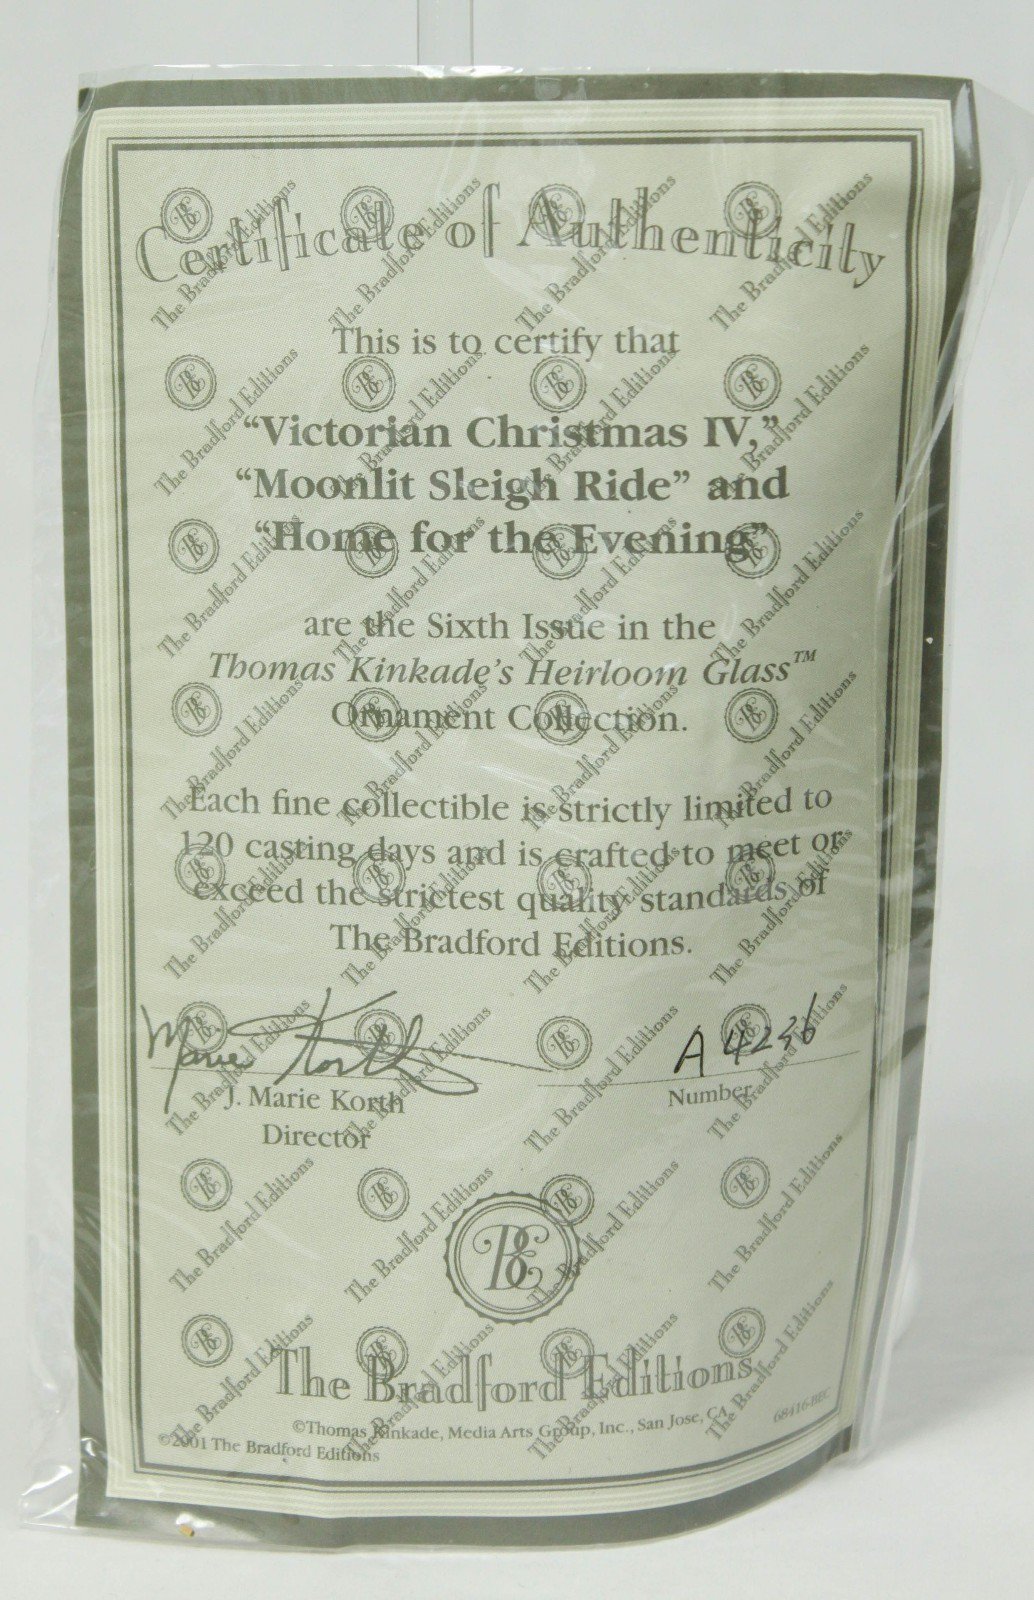 Certificate of Authenticity
This is to certify that
“Victorian Christmas IV,”
“Moonlit Sleigh Ride” and
“Home for the Evening”
are the Sixth Issue in the
Thomas Kinkade's Heirloom Glass™
Ornament Collection.
Each fine collectible is strictly limited to
120 casting days and is crafted to meet or
exceed the strictest quality standards of
The Bradford Editions.
Marie Korth A4236
J. Marie Korth Number
Director
BE
The Bradford Editions
©Thomas Kinkade, Media Arts Group, Inc., San Jose, CA 68416-BEC
©2001 The Bradford Editions